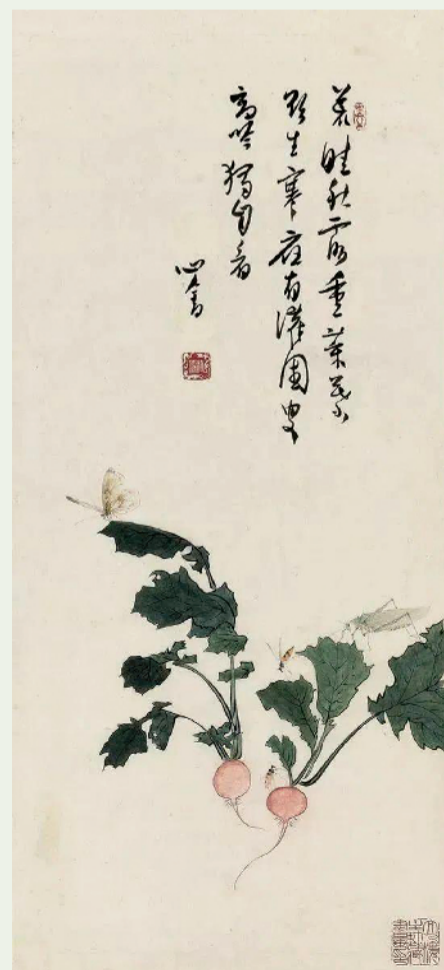 荒畦秋露重菜葉
生寒應有灌園叟
高吟獨自看
心畬